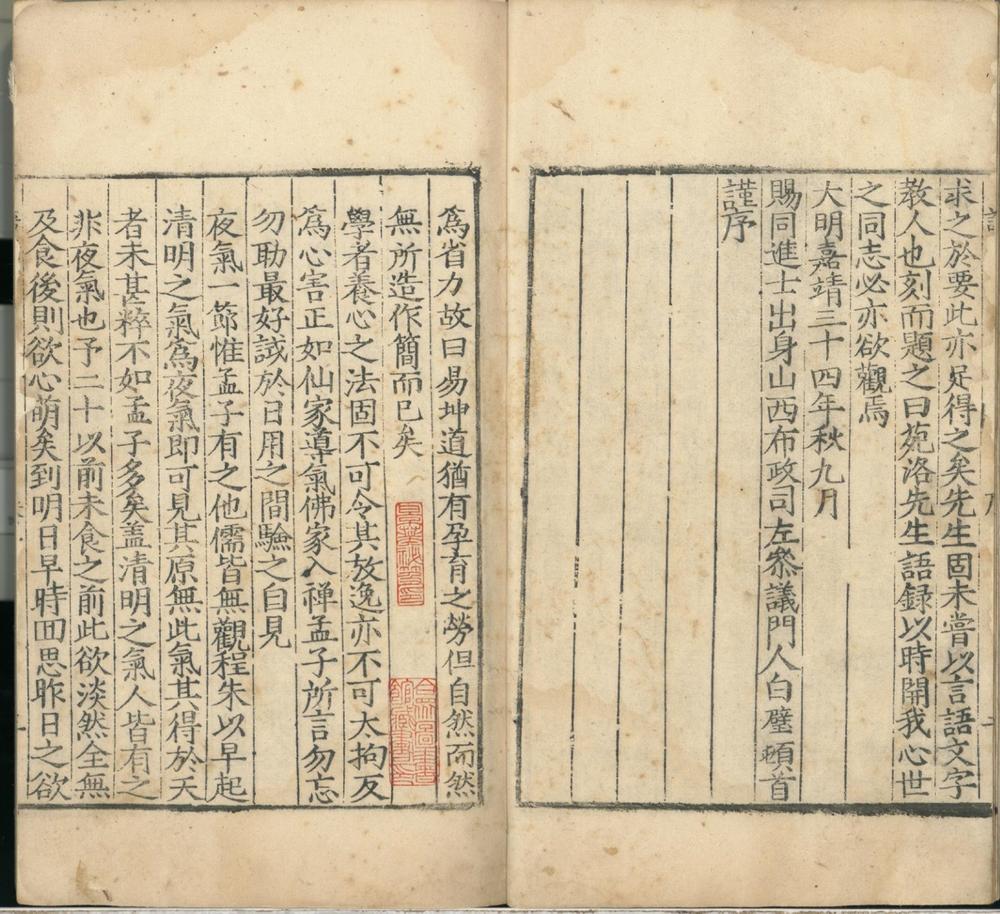 求之於要此亦足得之矣先生固未嘗以言語文字
教人也刻而題之曰苑洛先生語録以時開我心世
之同志必亦欲觀焉
大明嘉靖三十四年秋九月
賜同進士出身山西布政司左叅議門人白璧頓首
謹序
為省力故曰易坤道猶有孕育之勞但自然而然
無所造作簡而已矣
學者養心之法固不可令其放逸亦不可太拘反
為心害正如仙家導氣佛家入禅孟子所言勿忘
勿助最好試於日用之間驗之自見
夜氣一節惟孟子有之他儒皆無觀程朱以早起
清明之氣為夜氣即可見其原無此氣其得於天
者未甚粹不如孟子多矣盖清明之氣人皆有之
非夜氣也予二十以前未食之前此欲淡然全無
及食後則欲心萌矣到明日早時囬思昨日之欲